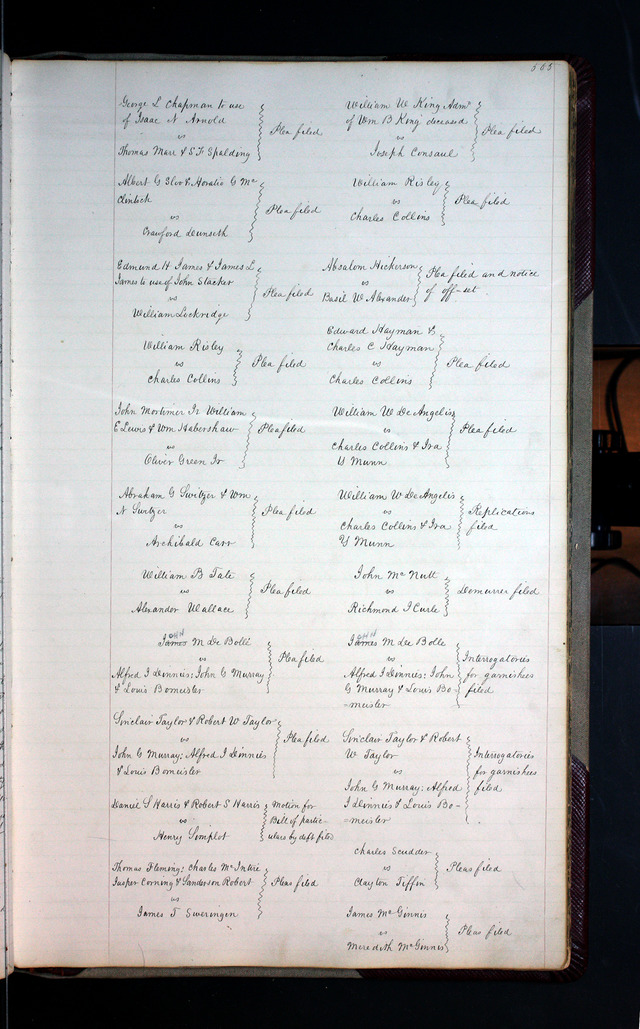 565
George L Chapman to use
of Isaac N Arnold
vs
Thomas Marr & S. F. Spalding
Plea filed
Albert G Sloo & Horatio G Mc
Clintick
vs
Crawford Dunseth
Plea filed
Edmund H James & James L
James to use of John Stacker
vs
William Lockridge
Plea filed
William Risley
vs
Charles Collins
Plea filed
John Mortimer Jr William
E Lewis & Wm Habershaw
vs
Oliver Green Jr
Plea filed
Abraham G Switzer & Wm
N Switzer
vs
Archibald Carr
Plea filed
William B Tate
vs
Alexander Wallace
Plea filed
John
James M De Bolle
vs
Alfred I Dennies; John G Murray
& Louis Bomeister
Plea filed
Sinclair Taylor & Robert W Taylor
vs
John G Murray; Alfred I Dennies
& Louis Bomeister
Plea filed
Daniel S Harris & Robert S Harris
vs
Henry Somplot
Motion for
Bill of partic-
ulars by deft filed
Thomas Fleming; Charles McIntire
Jasper Corning & Sanderson Robert
vs
James T Sweringen
Pleas filed
William W King Admr
of Wm B King deceased
vs
Joseph Consaul
Plea filed
William Risley
vs
Charles Collins
Plea filed
Absalom Hickerson
vs
Basil W Alexander
Plea filed and notice
of off-set
Edward Hayman &
Charles C Hayman
vs
Charles Collins
Plea filed
William W De Angelis
vs
Charles Collins & Ira
Y Munn
Plea filed
William W De Angelis
vs
Charles Collins & Ira
Y Munn
Replications
filed
John Mc Nutt
vs
Richmond I Curle
Demurrer filed
John
James M De Bolle
vs
Alfred I Dennies; John
G Murray & Louis Bo-
-meister
Interrogatories
for garnishees
filed
Sinclair Taylor & Robert
W Taylor
vs
John G Murray; Alfred
I Dennies & Louis Bo-
-meister
Interrogatories
for garnishees
filed
Charles Scudder
vs
Clayton Tiffin
Pleas filed
James Mc Ginnis
vs
Meredith Mc Ginnis
Pleas filed